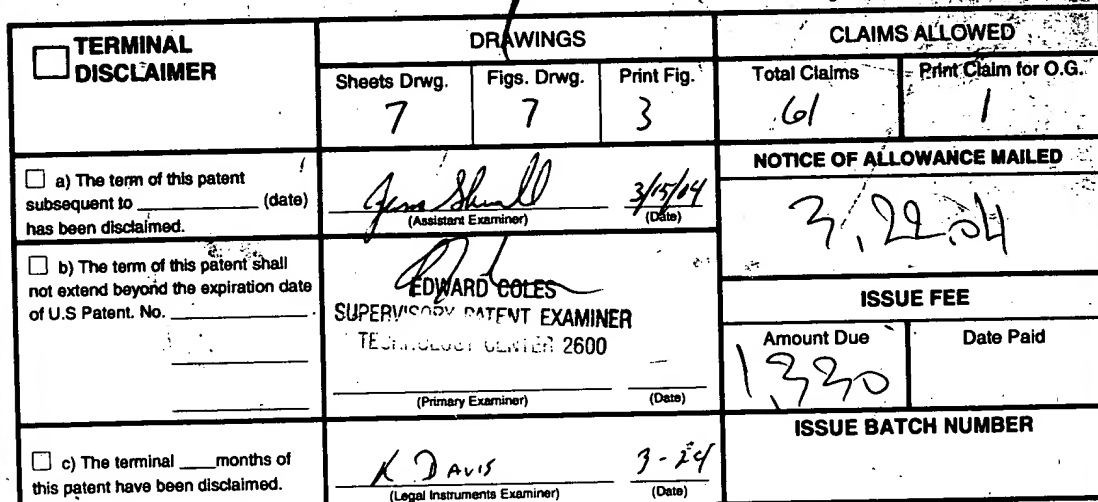 TERMINAL
DISCLAIMER
DRAWINGS
CLAIMS ALLOWED
Sheets Drwg.
Figs. Drwg.
Print Fig.
Total Claims
Print Claim for O.G.
7
7
3
61
1
a) The term of this patent
subsequent to ____________ (date)
has been disclaimed.
3/15/04
(Assistant Examiner)
(Date)
NOTICE OF ALLOWANCE MAILED
3.22.04
b) The term of this patent shall
not extend beyond the expiration date
of U.S Patent. No. ____________
EDWARD COLES
SUPERVISORY PATENT EXAMINER
TECHNOLOGY CENTER 2600
(Primary Examiner)
(Date)
ISSUE FEE
Amount Due
Date Paid
1,330
c) The terminal ____months of
this patent have been disclaimed.
K DAVIS
3-24
(Legal Instruments Examiner)
(Date)
ISSUE BATCH NUMBER